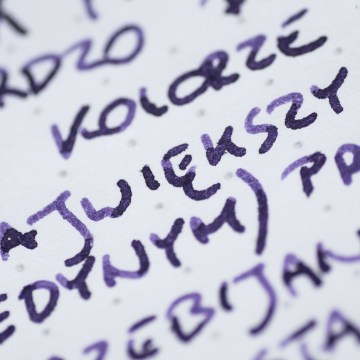 RDZO KOLORZE
AJWIĘKSZY
EDYNYM) PR
ZEBIJAN